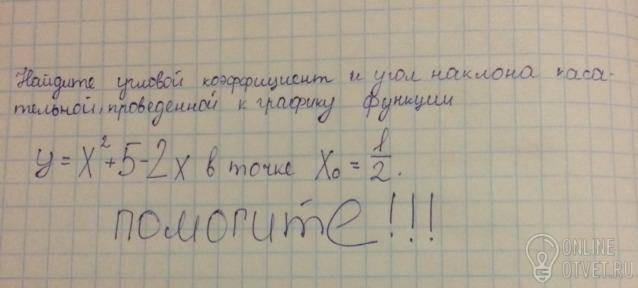 Найдите угловой коэффициент и угол наклона каса-
тельной, проведенной к графику функции
y = x² + 5 - 2x в точке x₀ = 1/2.
помогите!!!
ONLINE
OTVET.RU